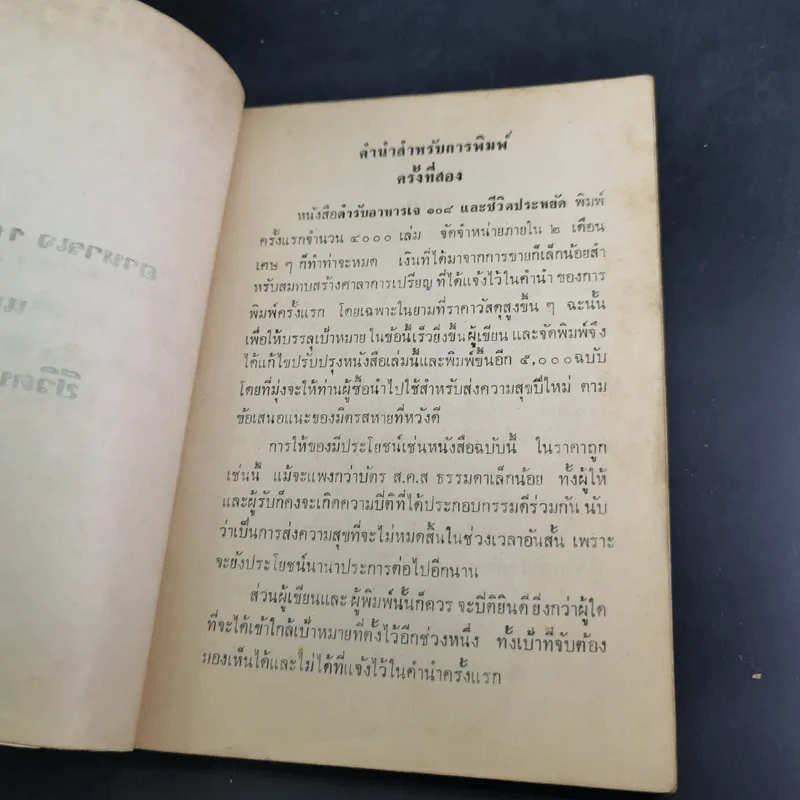 คำนำสำหรับการพิมพ์
ครั้งที่สอง
หนังสือตำรับอาหารเจ ๑๐๘ และชีวิตประหยัด พิมพ์
ครั้งแรกจำนวน ๔๐๐๐ เล่ม จัดจำหน่ายภายใน ๒ เดือน
เศษ ๆ ก็ทำท่าจะหมด เงินที่ได้มาจากการขายก็เล็กน้อยสำ
หรับสมทบสร้างศาลาการเปรียญ ที่ได้แจ้งไว้ในคำนำ ของการ
พิมพ์ครั้งแรก โดยเฉพาะในยามที่ราคาวัสดุสูงขึ้น ๆ ฉะนั้น
เพื่อให้บรรลุเป้าหมาย ในข้อนี้เร็วยิ่งขึ้น ผู้เขียน และจัดพิมพ์จึง
ได้แก้ไขปรับปรุงหนังสือเล่มนี้และพิมพ์ขึ้นอีก ๕,๐๐๐ฉบับ
โดยที่มุ่งจะให้ท่านผู้ซื้อนำไปใช้สำหรับส่งความสุขปีใหม่ ตาม
ข้อเสนอแนะของมิตรสหายที่หวังดี
การให้ของมีประโยชน์เช่นหนังสือฉบับนี้ ในราคาถูก
เช่นนี้ แม้จะแพงกว่าบัตร ส.ค.ส ธรรมดาเล็กน้อย ทั้งผู้ให้
และผู้รับก็คงจะเกิดความปีติที่ได้ประกอบกรรมดีร่วมกัน นับ
ว่าเป็นการส่งความสุขที่จะไม่หมดสิ้นในช่วงเวลาอันสั้น เพราะ
จะยังประโยชน์นานาประการต่อไปอีกนาน
ส่วนผู้เขียนและ ผู้พิมพ์นั้นก็ควร จะปีติยินดี ยิ่งกว่าผู้ใด
ที่จะได้เข้าใกล้เป้าหมายที่ตั้งไว้อีกช่วงหนึ่ง ทั้งเป้าที่จับต้อง
มองเห็นได้และไม่ได้ที่แจ้งไว้ในคำนำครั้งแรก